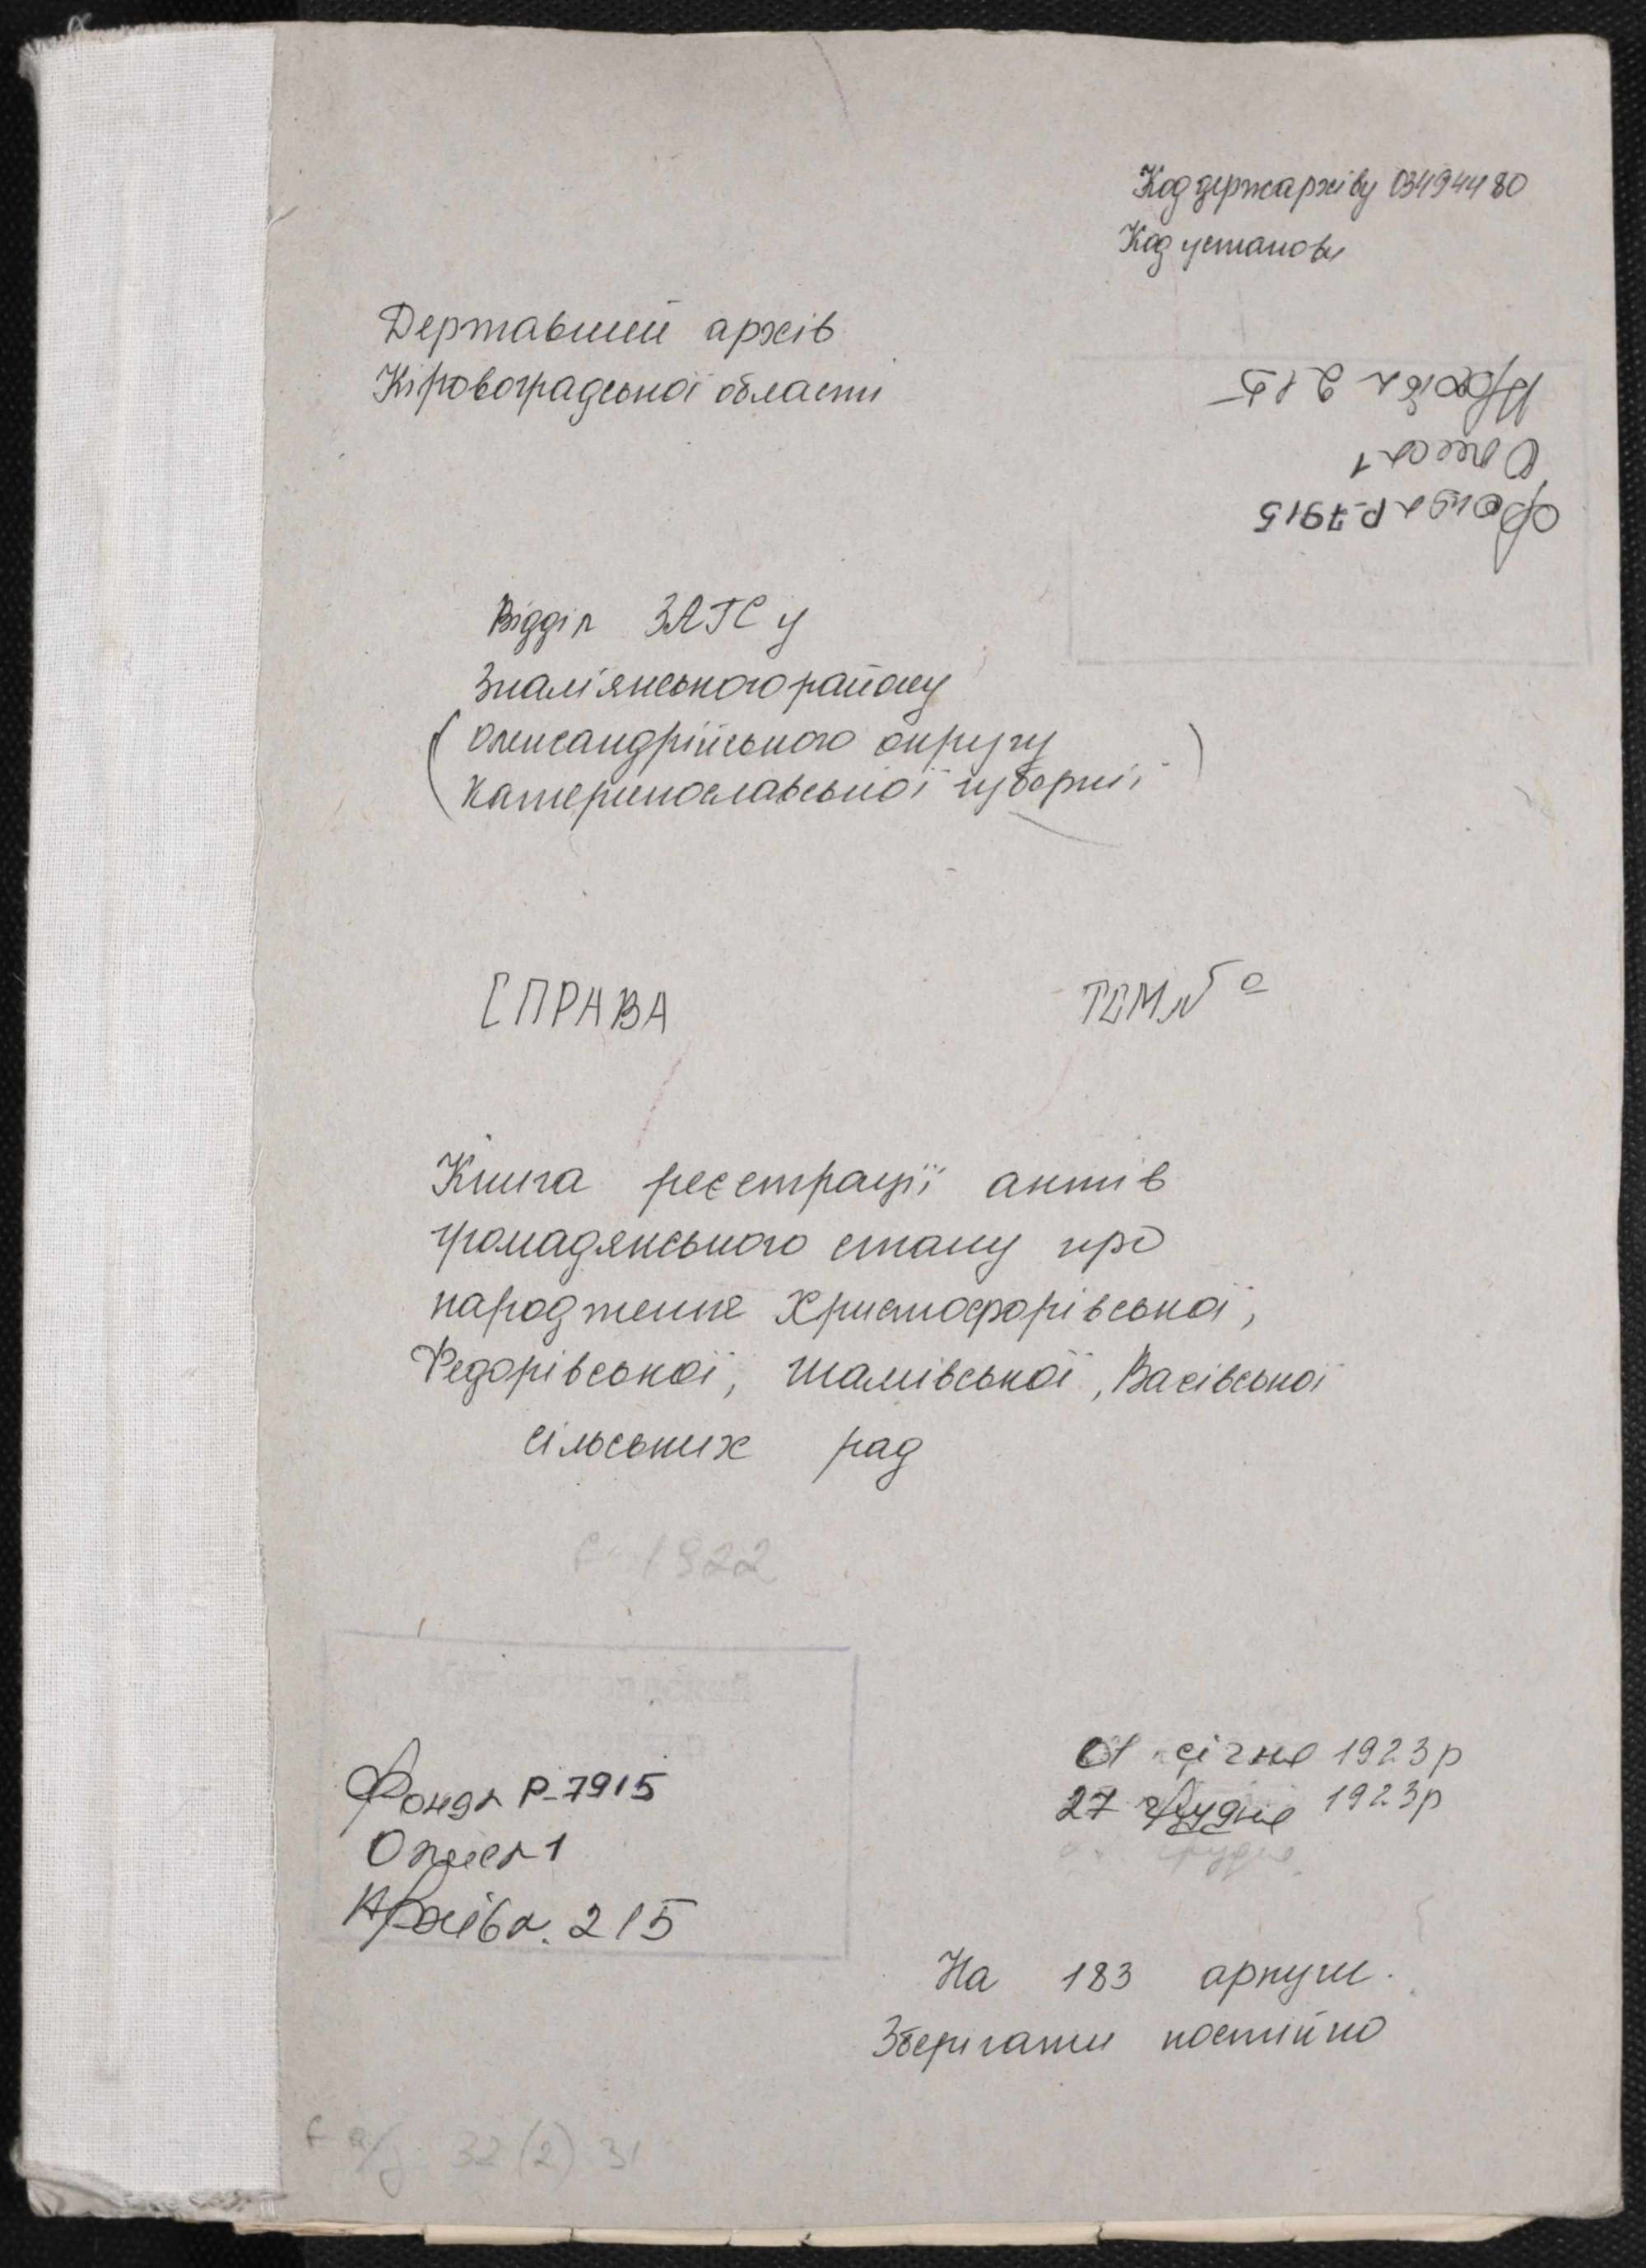 Код держархіву 03494480
Код установи
Державний архів
Кіровоградської области
Архівн 215
Опись 1
Фондн Р-7915
Відділ ЗАГС у
Знам'янського району
( Олександрійського округу )
Катеринославської губернії
СПРАВА ТОМ №
Книга реєстрації актів
громадянського стану про
народження Христофорівської,
Федорівської, Шамівської, Васівської
сільських рад
1922
01 січня 1923р
27 грудня 1923р
грудня
Фондн Р-7915
Опись 1
Архівн. 215
На 183 аркуш.
Зберігати постійно
32 (2) 31